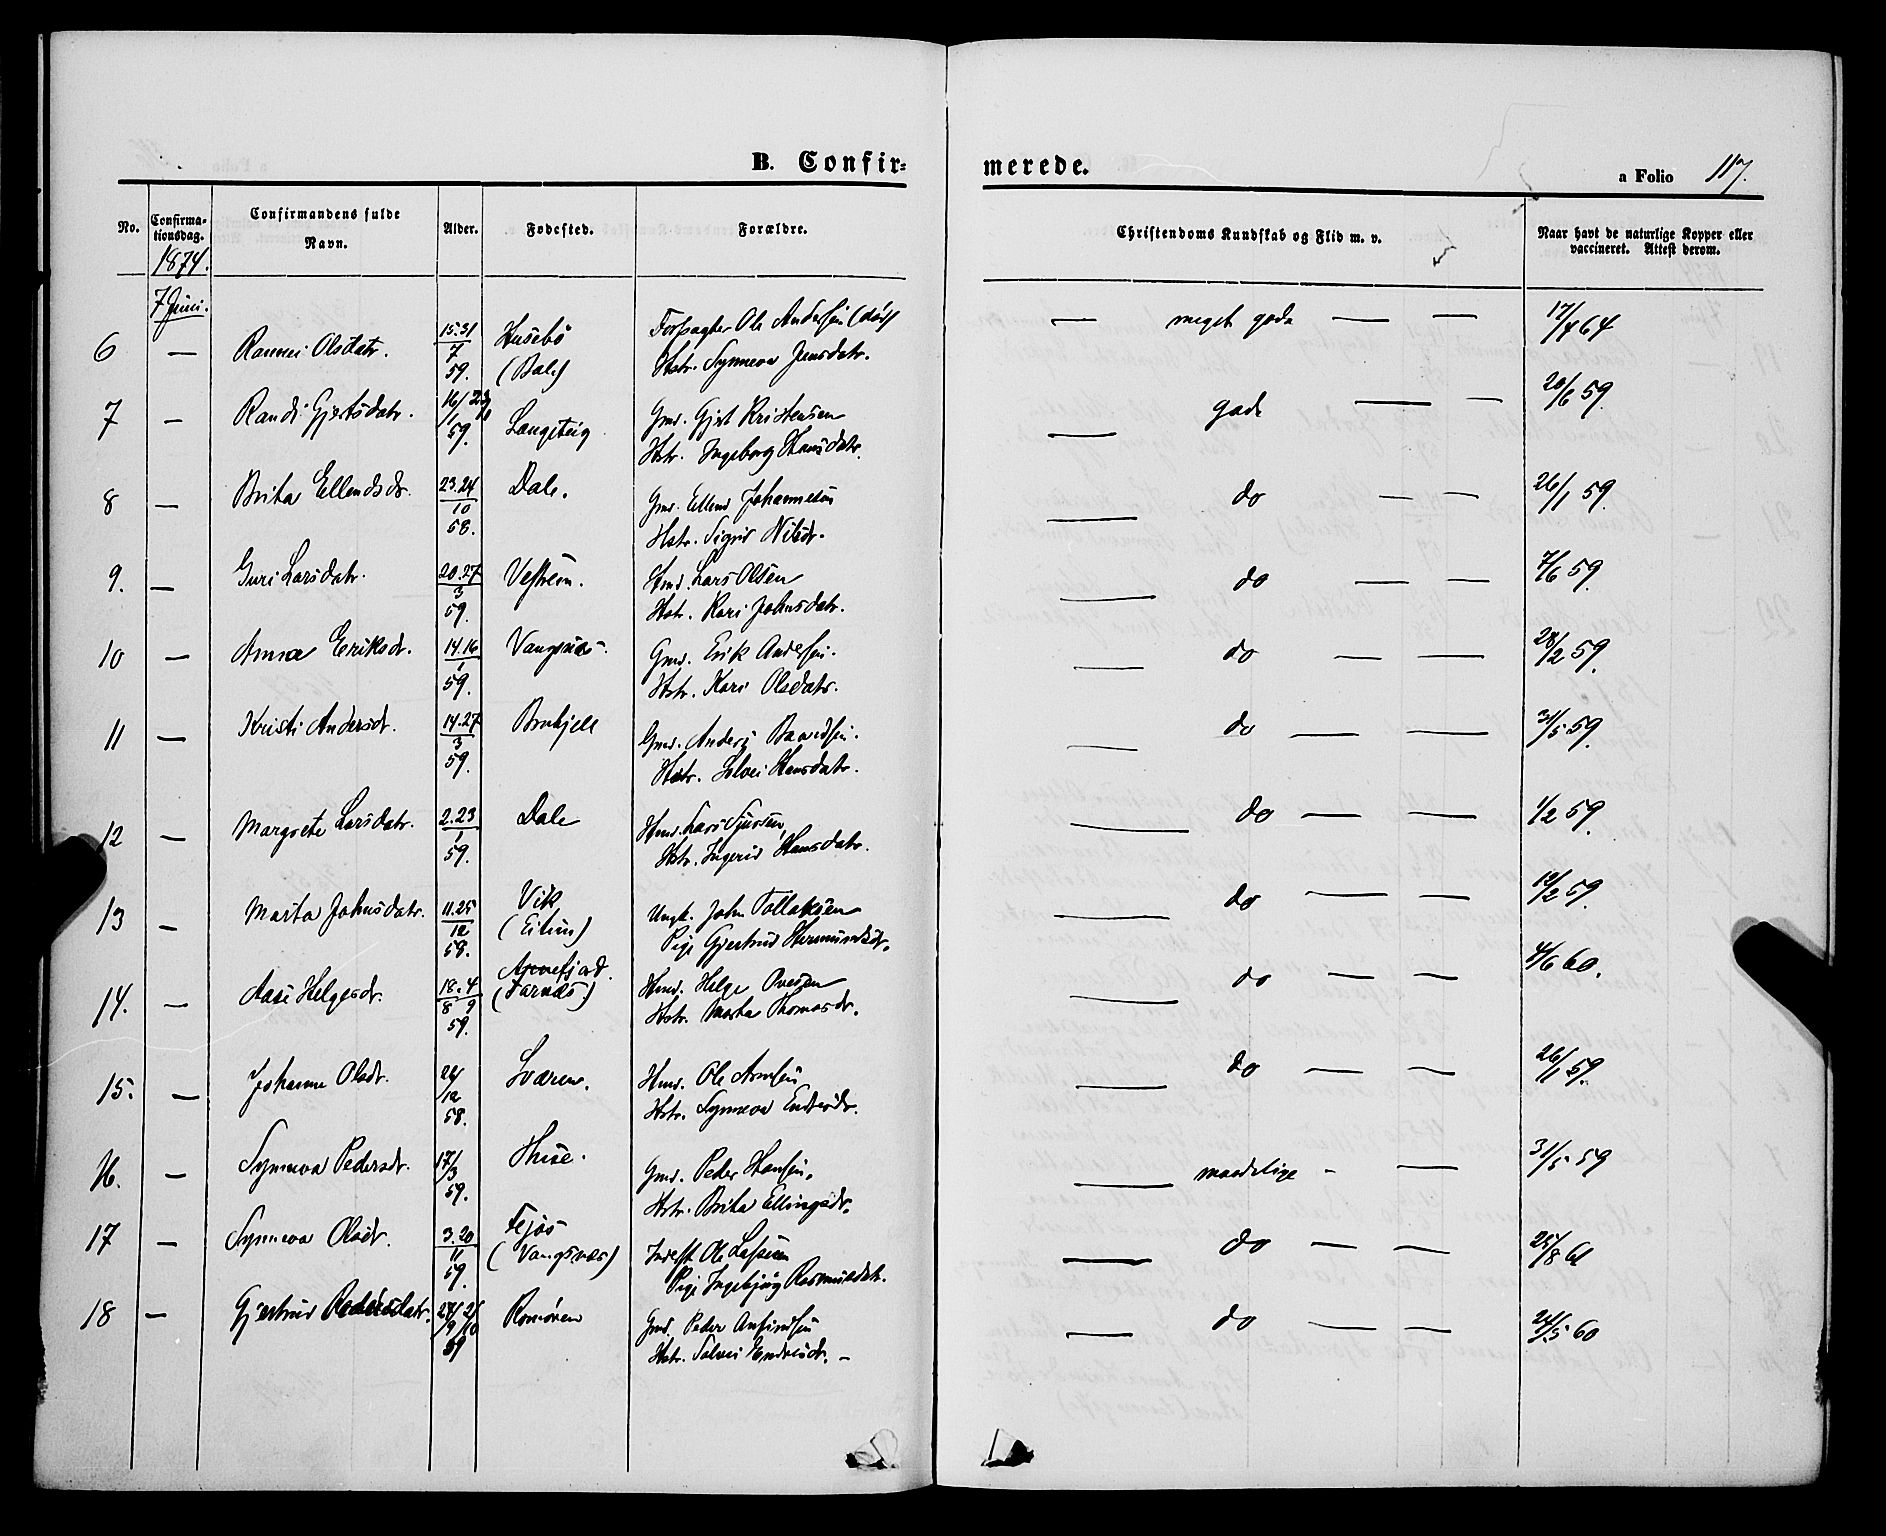 B. Confir=
merede.
a Folio 117.
No.
Confirma-
tionsdag.
Confirmandens fulde
Navn.
Alder.
Fødested.
Forældre.
Christendoms Kundskab og Flid m. v.
Naar havt de naturlige Kopper eller
vaccineret. Attest derom.
1874.
7 Juni.
6 — Olsdatr. 15.31/7 59. Husebö (Dale)
Forpagter Ole Andersen (död)
Hstr. Synneva Jensdatr.
— meget gode — — 17/4 64
7 — Randi Gjertsdatr. 59. Langeteig
Gmd. Gjert Kristensen
Hstr. Ingeborg Hansdatr.
— gode — — 20/6 59.
8 — Brita Ellendsdr. 23.24/10 58. Dale.
Gmd. Ellend Johannesen
Hstr. Sigrid Nilsdr.
— do — — 26/1 59.
9. — Guri Larsdatr. 20.27/3 59. Vestrem.
Hmd. Lars Olsen
Hstr. Kari Johnsdatr.
— do — — 7/6 59.
10 — Anna Eriksdr. 14.16/1 59. Vangsnæs.
Gmd. Erik Andersen.
Hstr. Kari Olsdatr.
— do — — 28/2 59.
11 — Kristi Andersdr. 14.27/3 59.
Gmd. Anders
Hstr. Hansdatr.
— do — — 31/5 59.
12 — Margrete Larsdatr. 2.23/1 59. Dale
Hmd. Lars Sjursen,
Hstr. Ingerid Hansdatr.
— do — — 1/2 59.
13 — Marta Johnsdatr. 11.25/12 58. Vik
Ungk. John Tollaksen
Pige Gjertrud Hermundsdr.
— do — — 12/2 59.
14. — Aase Helgesdr. 18/8.4/9 59. Arnefjord.
Hmd. Helge Ovesen
Hstr. Marta Thomasdr.
— do — — 4/6 60.
15. — Johanne Olsdr. 58. Sværen.
Hmd. Ole Arnesen
Hstr. Synneva Endresdr.
— do — — 26/1 59.
16. — Synneva Pedersdr. 17/3 59. Huse.
Gmd. Peder Hansen.
Hstr. Brita Ellingsdr.
— maadelige - — 31/5 59
17 — Synneva Olsdr. 3.20/11 59. Fejos (Vangsnæs)
Inderst Ole Lassen
Pige Ingebjörg Rasmusdtr.
— do — — 25/8 61
18 — Gjertrud Pedersdatr. 59 Romören
Gmd. Peder Anfindsen
Hstr. Solvei Endresdr. —
— do — — 24/5 60